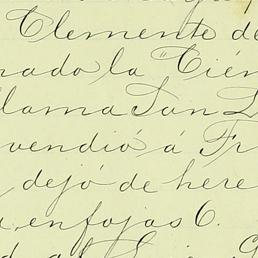 Clemente de
nado la "Cién
llama San L
vendió á Fr
, dejó de here
a, en fojas 6.